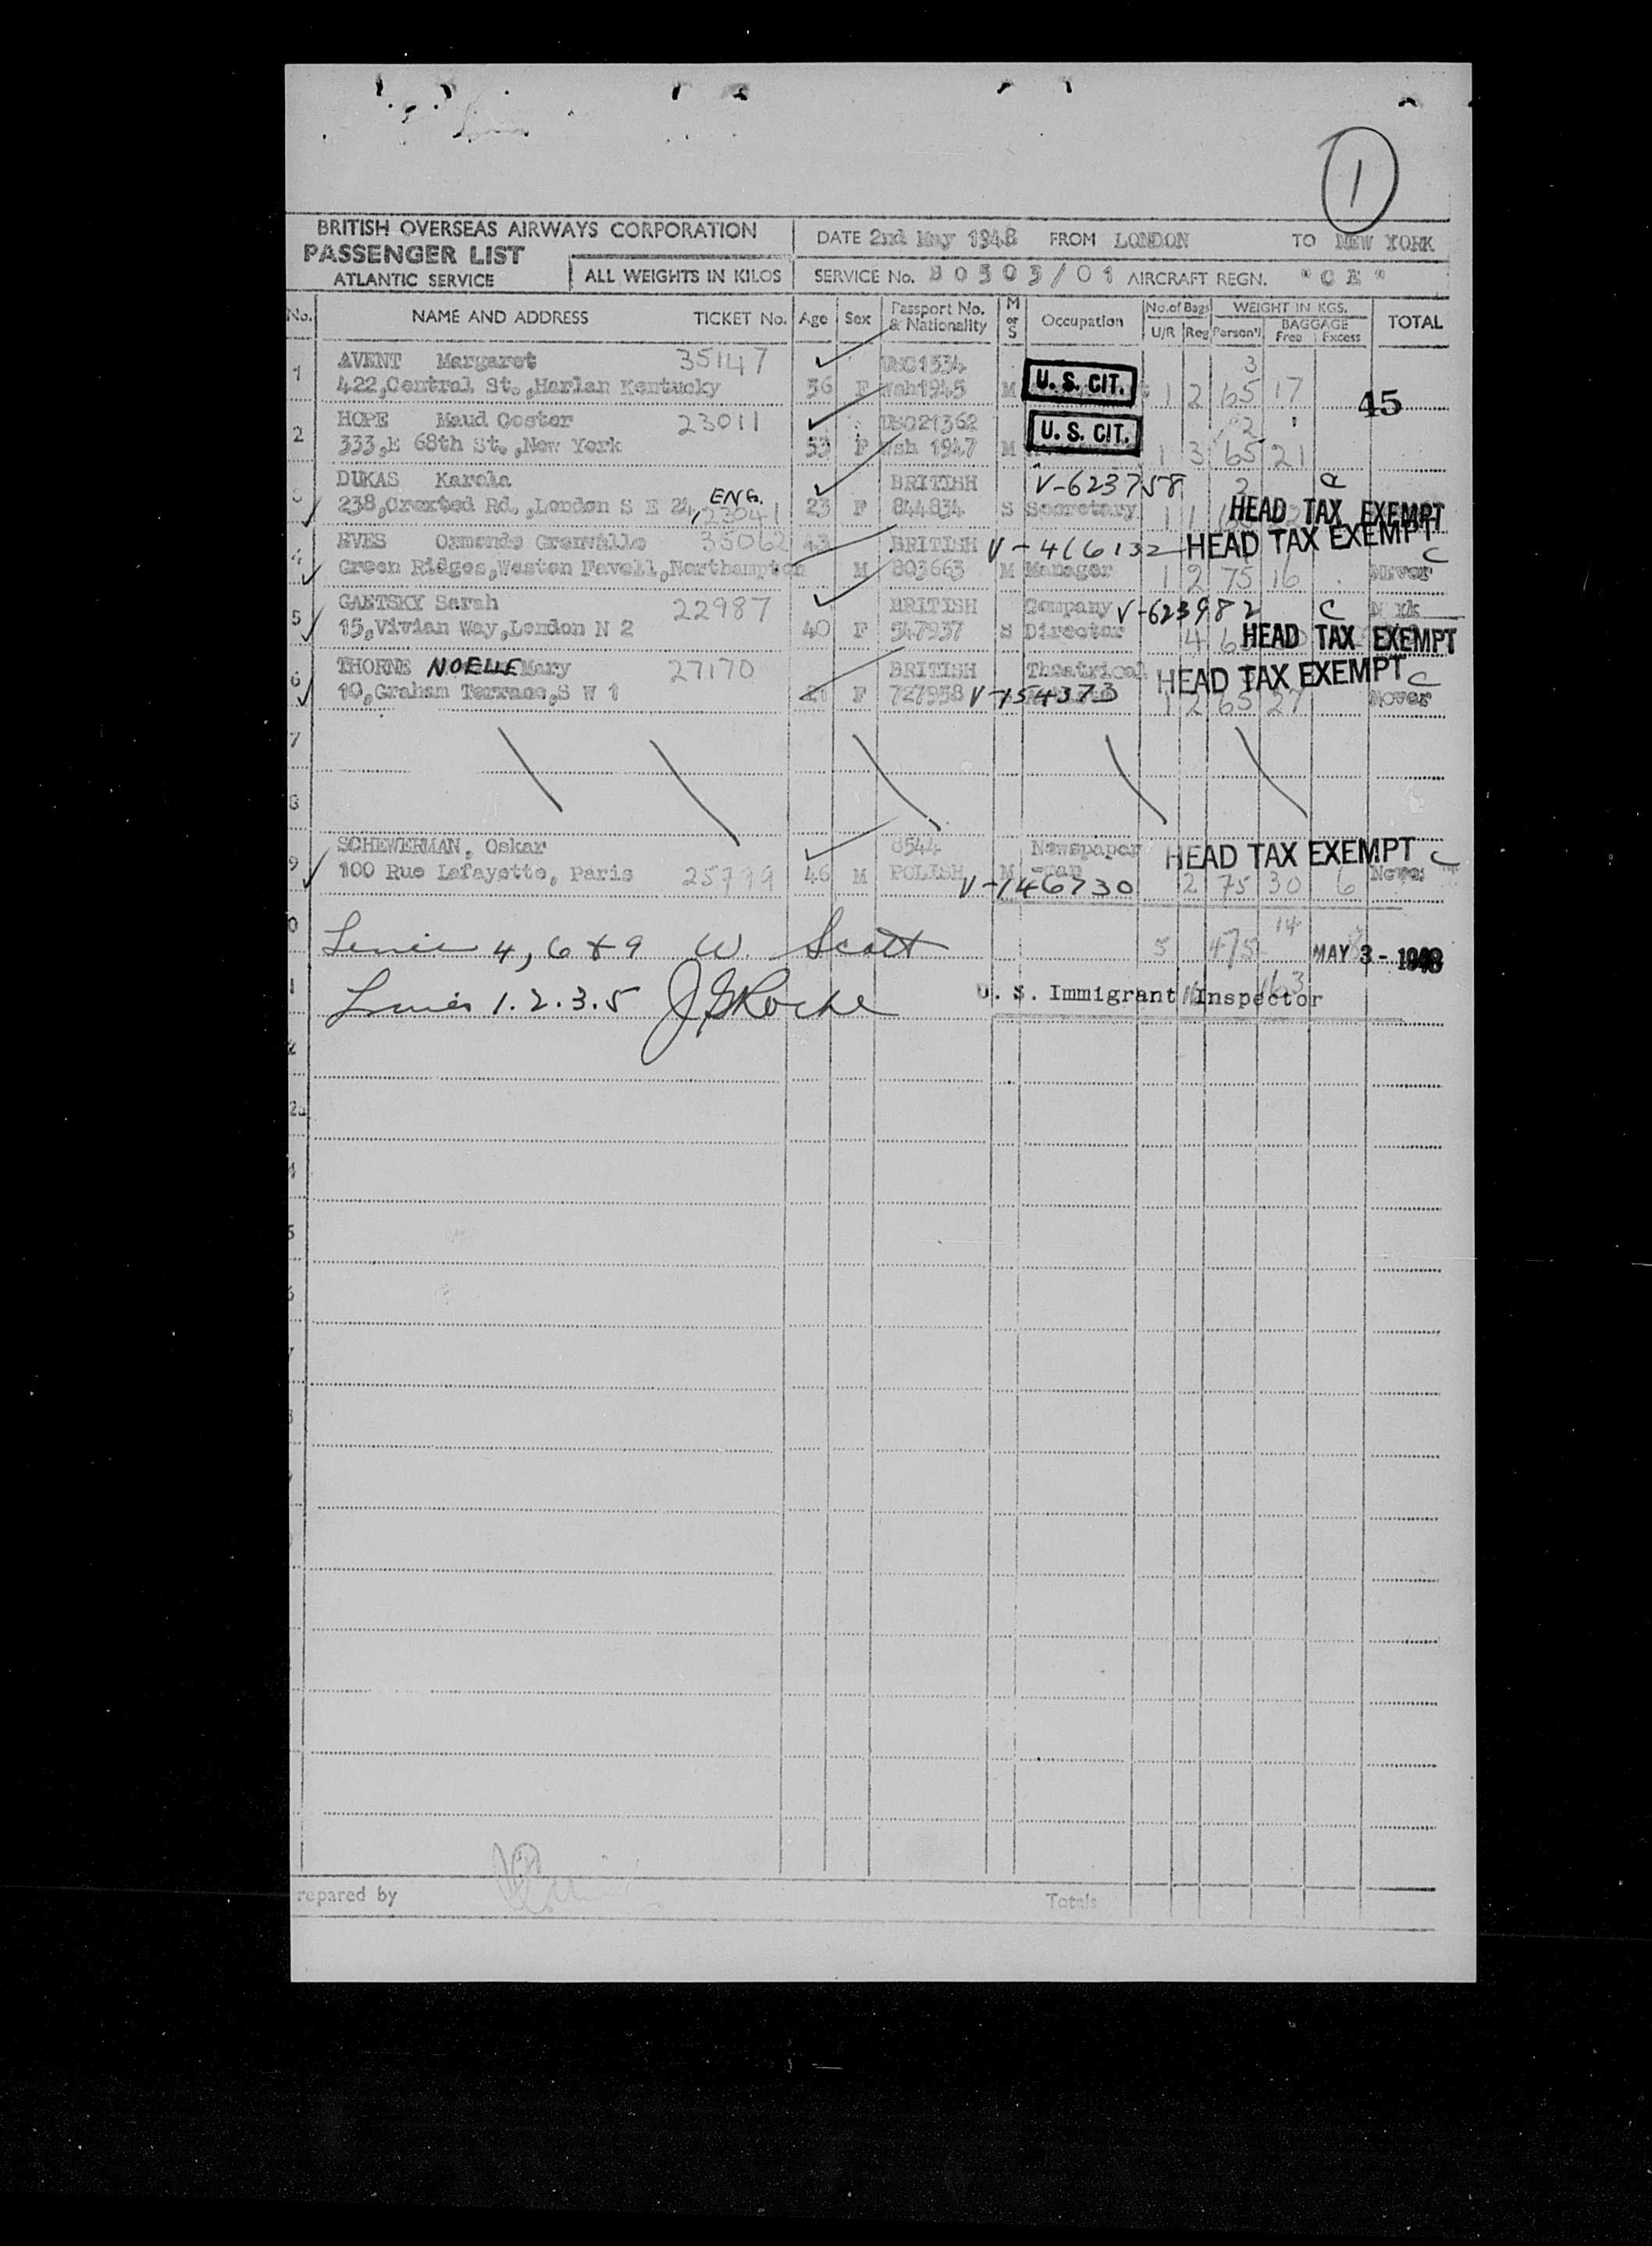 1
BRITISH OVERSEAS AIRWAYS CORPORATION
PASSENGER LIST
ATLANTIC SERVICE
ALL WEIGHTS IN KILOS
DATE 2nd May 1948 FROM LONDON TO NEW YORK
SERVICE No. AIRCRAFT REGN.
No. NAME AND ADDRESS TICKET No. Age Sex Passport No. & Nationality M or S Occupation No. of Bags U/R Reg WEIGHT IN KGS. Person'l BAGGAGE Free Excess TOTAL
1 AVENT Margaret 35147 3
422, Central St., Harlan Kentucky 36 F Wsh 1945 M U. S. CIT. 1 2 65 17 45
2 HOPE Maud Coster 23011 U. S. CIT. 2
333, E 68th St., New York 53 F Wsh 1947 M 1 3 65 21
DUKAS Karola BRITISH V-623758 2
238, Croxted Rd., London S E 24, ENG. 23041 23 F 844834 S Secretary 1 1 HEAD TAX EXEMPT
4 EVES Ormonde Grenville 35062 43 BRITISH V-466132 HEAD TAX EXEMPT C
Green Ridges, Weston Favell, Northampton M 803663 M Manager 1 2 75 16 Never
5 GAETSKY Sarah 22987 BRITISH Company V-623982 C N Yk
15, Vivian Way, London N 2 40 F 547937 S Director 4 HEAD TAX EXEMPT
6 THORNE NOELLE Mary 27170 BRITISH Theatrical HEAD TAX EXEMPT C
10, Graham Terrace, S W 1 21 F 727958 V-154373 1 2 65 27 Never
7
8
SCHEWERMAN, Oskar 8544 Newspaper HEAD TAX EXEMPT C
9 100 Rue Lafayette, Paris 25999 46 M POLISH M V-146730 2 75 30 6 Never
14
Lines 4, 6 & 9 W. Scott 5 475 MAY 3 - 1948
Lines 1. 2. 3. 5 J G Roche U. S. Immigrant Inspector 163
Prepared by Totals